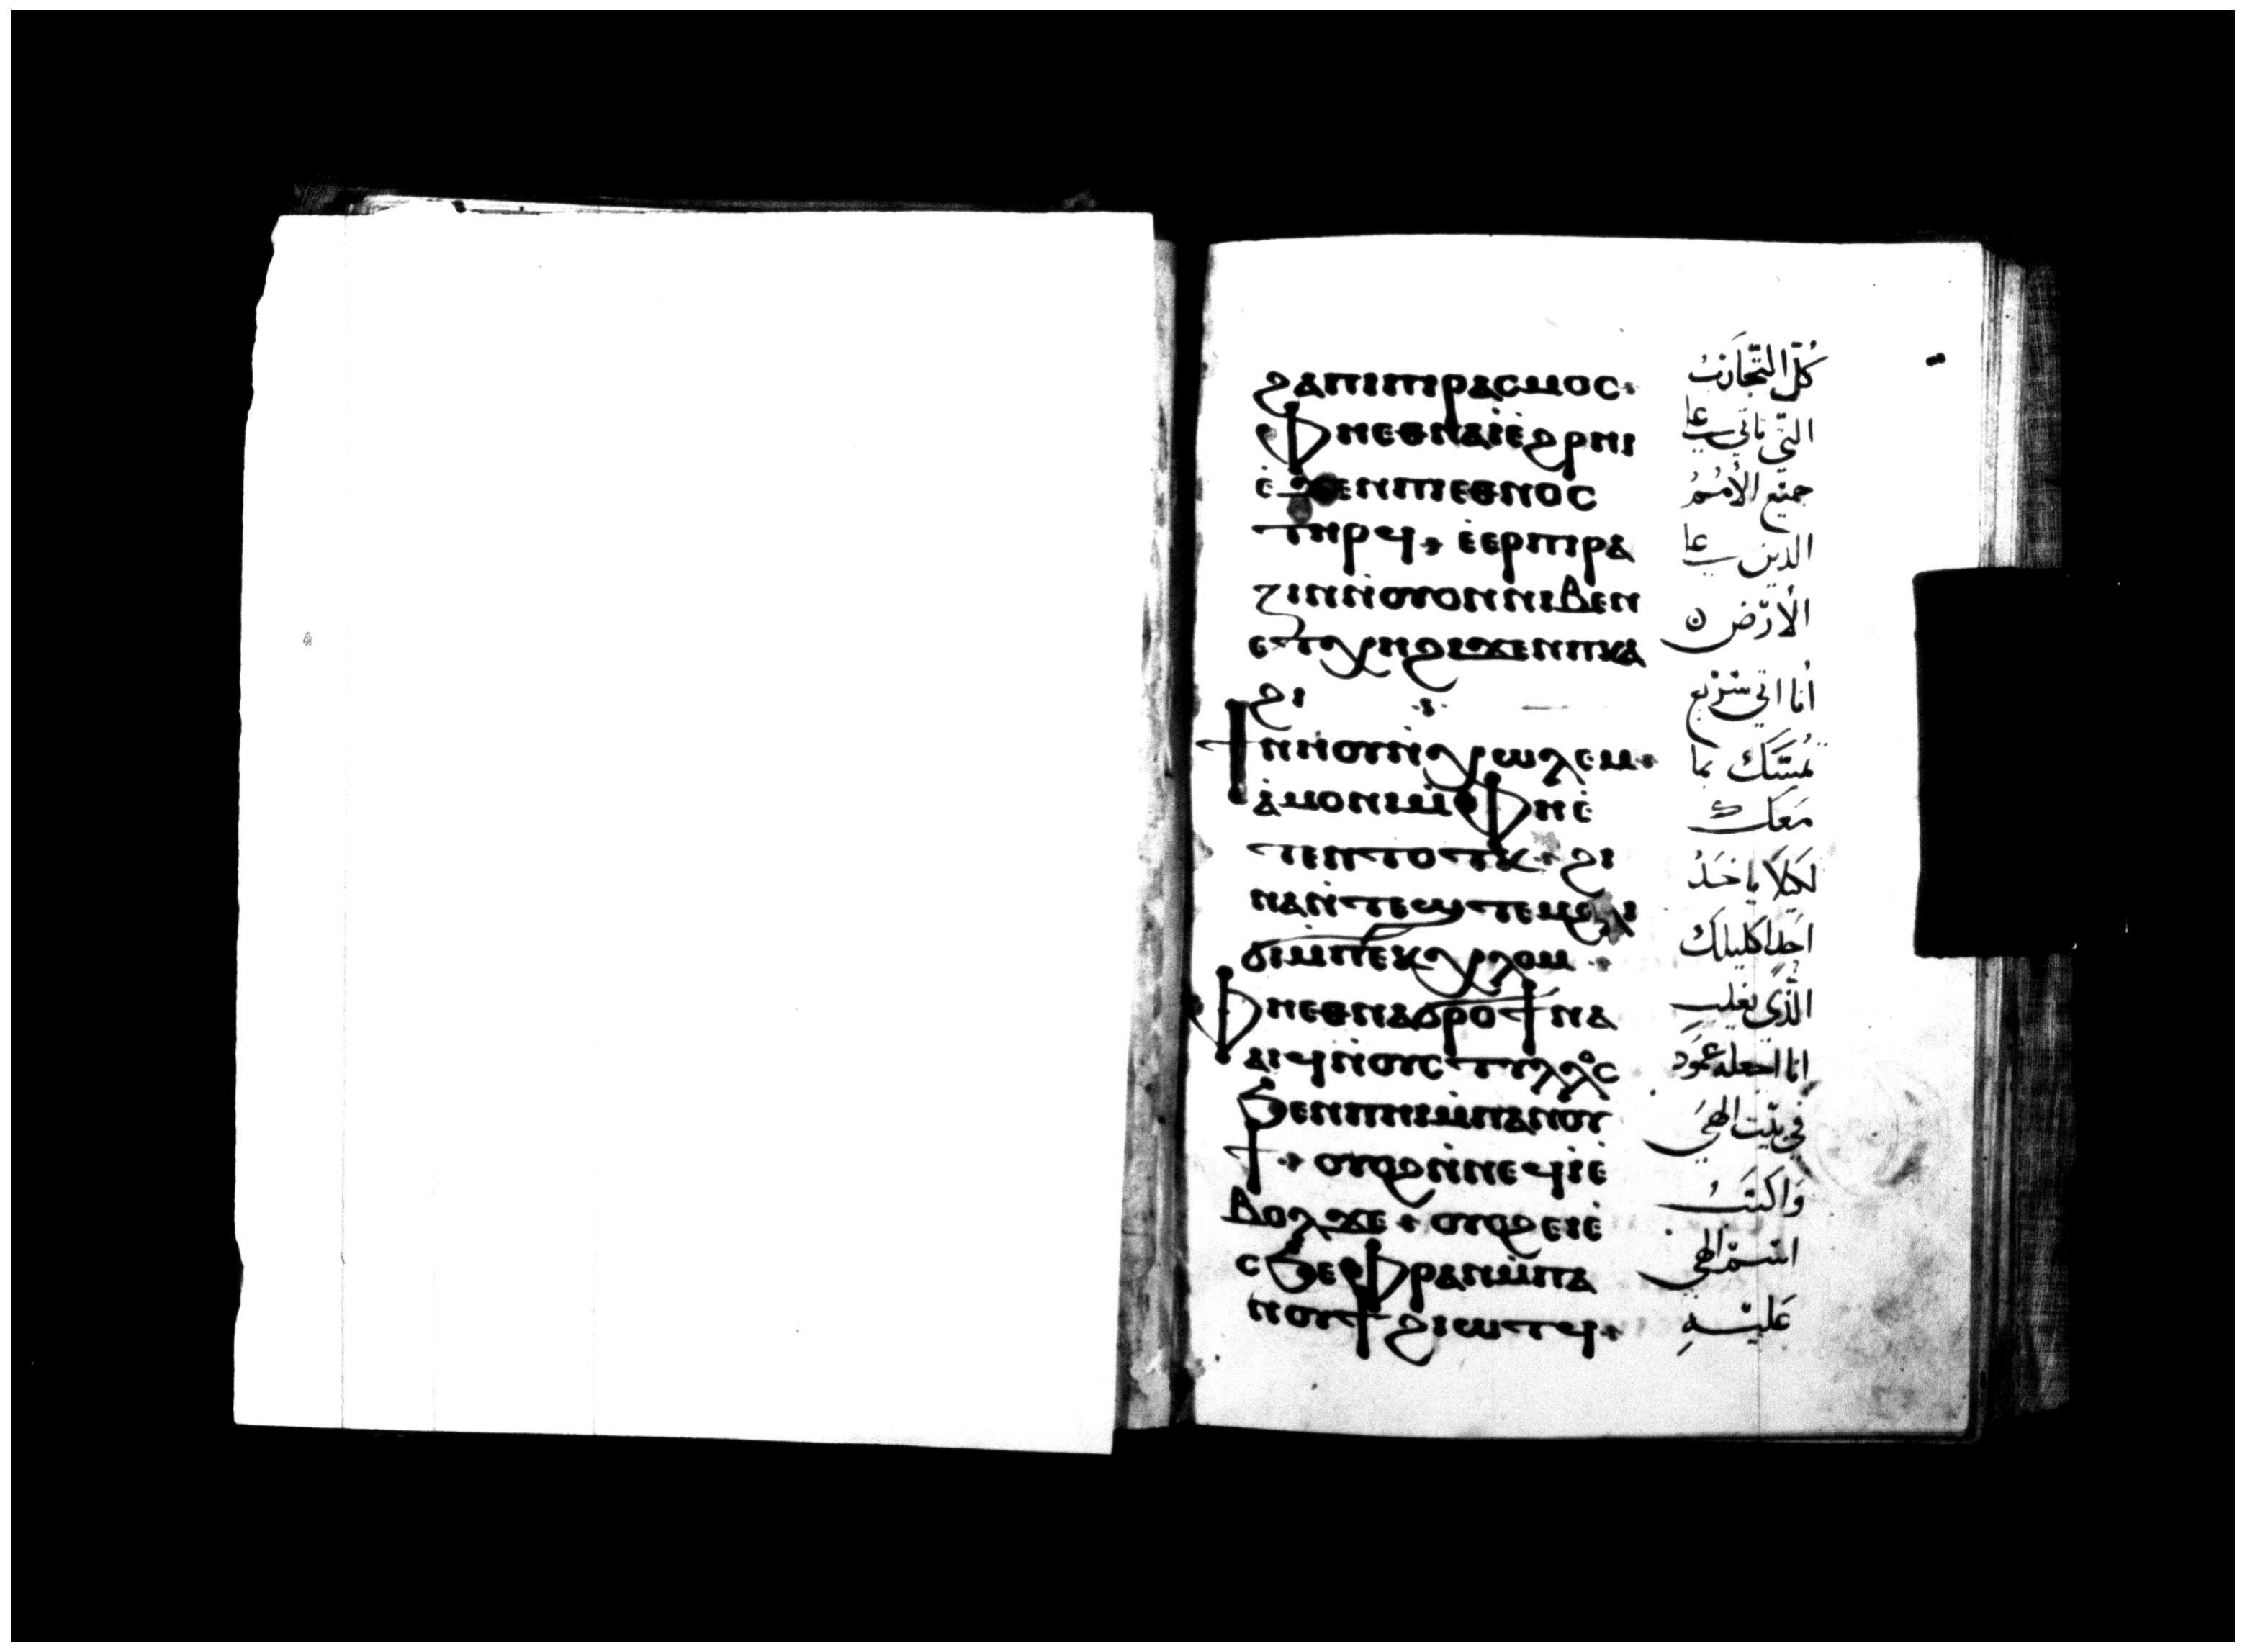 ϩⲁⲡⲓⲡⲓⲣⲁⲥⲙⲟⲥ·
ⲫⲏⲉⲑⲛⲁⲓ̀ⲉ̀ϩⲣⲏⲓ
ⲉ̀ϫⲉⲛⲡⲓⲉⲑⲛⲟⲥ
ⲧⲏⲣϥ· ⲉ̀ⲉⲣⲡⲓⲣⲁ
ⲍⲓⲛⲛ̀ⲟⲩⲟⲛⲛⲓⲃⲉⲛ
ⲉⲧⲭⲏϩⲓϫⲉⲛⲡⲕⲁ
ϩⲓ
ϯⲛⲏⲟⲩⲛ̀ⲭⲱⲗⲉⲙ·
ⲁ̀ⲙⲟⲛⲓⲙ̀ⲫⲏⲉ̀
ⲧⲉⲛⲧⲟⲧⲕ· ϩⲓ
ⲛⲁⲛ̀ⲧⲉϣⲧⲉⲙϩⲗⲓ
ϭⲓⲙ̀ⲡⲉⲕⲭⲗⲟⲙ·
ⲫⲏⲉⲑⲛⲁϭⲣⲟϯⲛⲁ
ⲁⲓϥⲛ̀ⲟⲩⲥⲧⲩⲗⲗⲟⲥ
ϧⲉⲛⲡⲏⲓⲙ̀ⲡⲁⲛⲟⲩ
ϯ· ⲟⲩⲟϩⲛ̀ⲛⲉϥⲓ̀ⲉ̀
ⲃⲟⲗϫⲉ· ⲟⲩⲟϩⲉⲓⲉ̀
ⲥϧⲉⲫⲣⲁⲛⲙ̀ⲡⲁ
ⲛⲟⲩϯϩⲓⲱⲧϥ·
كُلّ التّجَارَبُ
التّي تاتي علي
جميع الأُمُمُ
الذين علي
الأرّض
أنا اتي سَرْيع
تُمسَّك بما
مَعَك
لكيَلا ياخَدُ
احَدا كليلك
الذّي يغلب
انا اجعله عمَود
في بيّت الهيَ
وَاكتبَُ
اسّمْ الهي
عَليّهِ